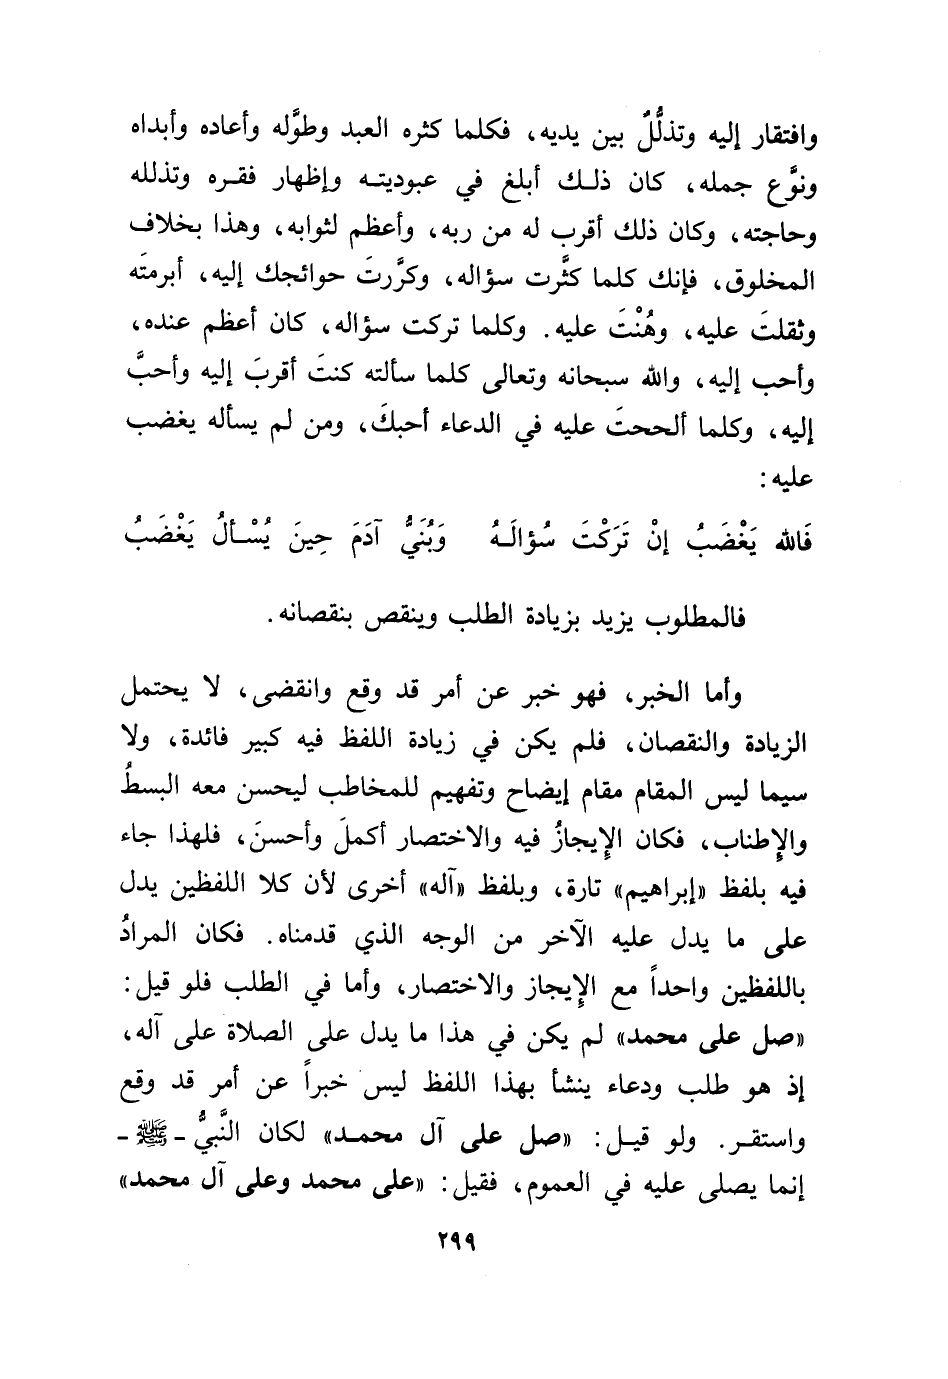 وافتقار إليه وتذلُّلٌ بين يديه، فكلما كثره العبد وطوَّله وأعاده وأبداه
ونوَّع جمله، كان ذلك أبلغ في عبوديته وإظهار فقره وتذلله
وحاجته، وكان ذلك أقرب له من ربه، وأعظم لثوابه، وهذا بخلاف
المخلوق، فإنك كلما كثَّرت سؤاله، وكرَّرتَ حوائجك إليه، أبرمتَه
وثقلتَ عليه، وهُنْتَ عليه. وكلما تركت سؤاله، كان أعظم عنده،
وأحب إليه، والله سبحانه وتعالى كلما سألته كنتَ أقربَ إليه وأحبَّ
إليه، وكلما ألححتَ عليه في الدعاء أحبكَ، ومن لم يسأله يغضب
عليه:
فَالله يَغْضَبُ إنْ تَرَكْتَ سُؤالَهُ وَبُنَيُّ آدَمَ حِينَ يُسْألُ يَغْضَبُ
فالمطلوب يزيد بزيادة الطلب وينقص بنقصانه.
وأما الخبر، فهو خبر عن أمر قد وقع وانقضى، لا يحتمل
الزيادة والنقصان، فلم يكن في زيادة اللفظ فيه كبير فائدة، ولا
سيما ليس المقام مقام إيضاح وتفهيم للمخاطب ليحسن معه البسطُ
والإطناب، فكان الإيجازُ فيه والاختصار أكملَ وأحسنَ، فلهذا جاء
فيه بلفظ «إبراهيم» تارة، وبلفظ «آله» أخرى لأن كلا اللفظين يدل
على ما يدل عليه الآخر من الوجه الذي قدمناه. فكان المرادُ
باللفظين واحداً مع الإيجاز والاختصار، وأما في الطلب فلو قيل:
«صل على محمد» لم يكن في هذا ما يدل على الصلاة على آله،
إذ هو طلب ودعاء ينشأ بهذا اللفظ ليس خبراً عن أمر قد وقع
واستقر. ولو قيل: «صل على آل محمد» لكان النَّبيُّ - ﷺ -
إنما يصلى عليه في العموم، فقيل: «على محمد وعلى آل محمد»
٢٩٩